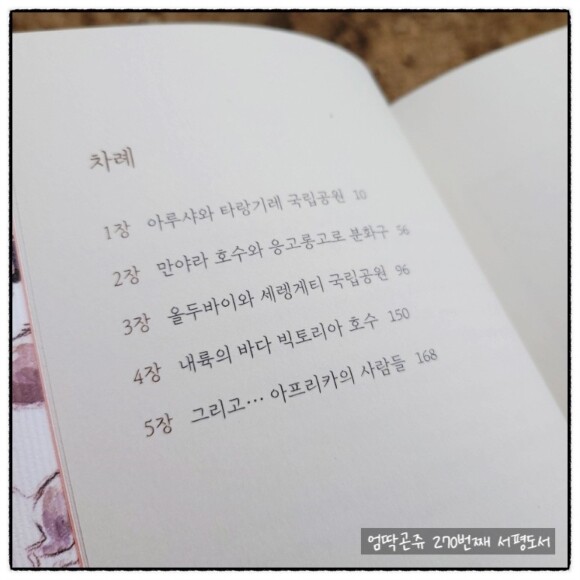 차례
1장 아루샤와 타랑기레 국립공원 10
2장 만야라 호수와 응고롱고로 분화구 56
3장 올두바이와 세렝게티 국립공원 96
4장 내륙의 바다 빅토리아 호수 150
5장 그리고… 아프리카의 사람들 168
엄딱곤쥬 270번째 서평도서